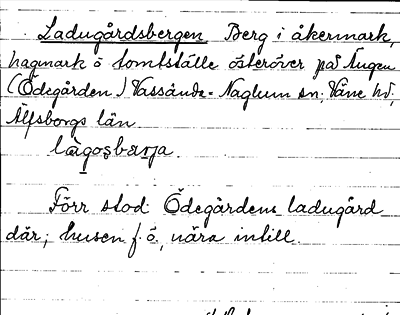 Ladugårdsbergen Berg i åkermark,
hagmark o tomtställe österöver på Ängen
(Ödegården) Vassända-Naglum sn, Väne hd,
Älfsborgs län.
Förr stod Ödegårdens ladugård
där; husen f. ö. nära intill.